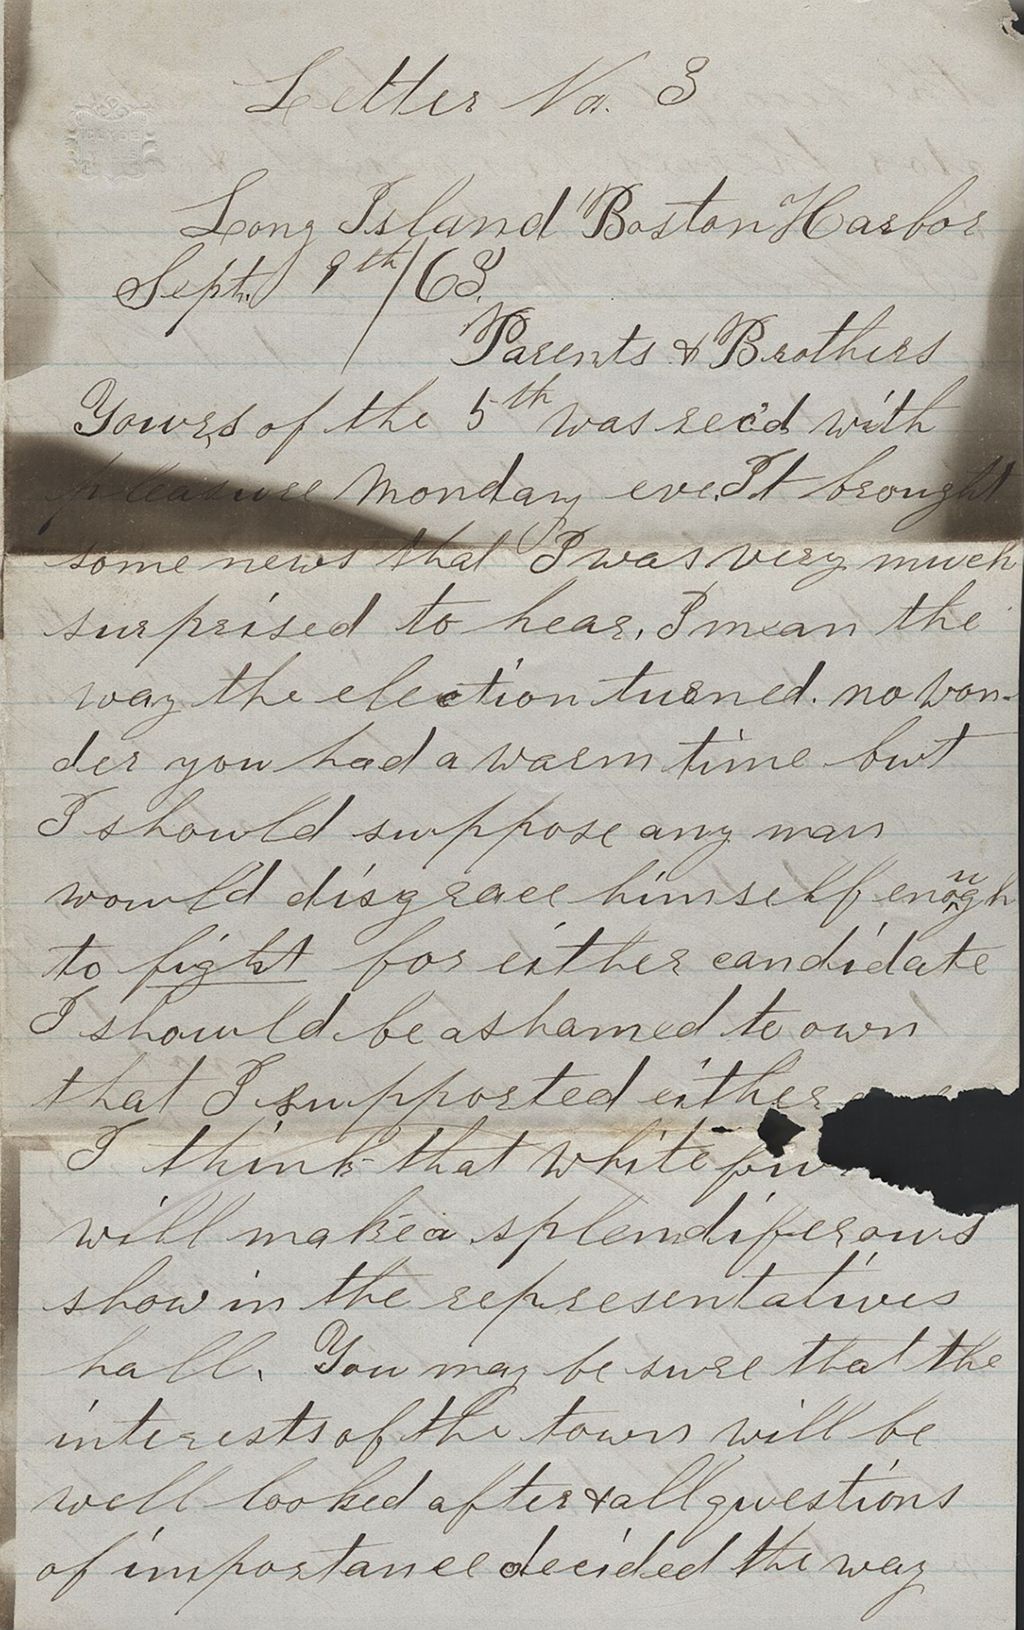 Letter No. 3
Long Island Boston Harbor
Sept. 9th/63.
Parents & Brothers
Yours of the 5th was rec'd with
pleasure Monday eve. It brought
some news that I was very much
surprised to hear, I mean the
way the election turned. no won-
der you had a warm time but
I should suppose any man
would disgrace himself enough
to fight for either candidate
I should be ashamed to own
that I supported either
I think that white
will make a splendiferous
show in the representatives
hall. You may be sure that the
interests of the town will be
well looked after & all questions
of importance decided the way